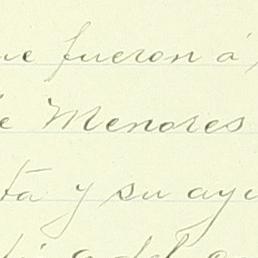 ue fueron á
e Menores
ta y su ayu